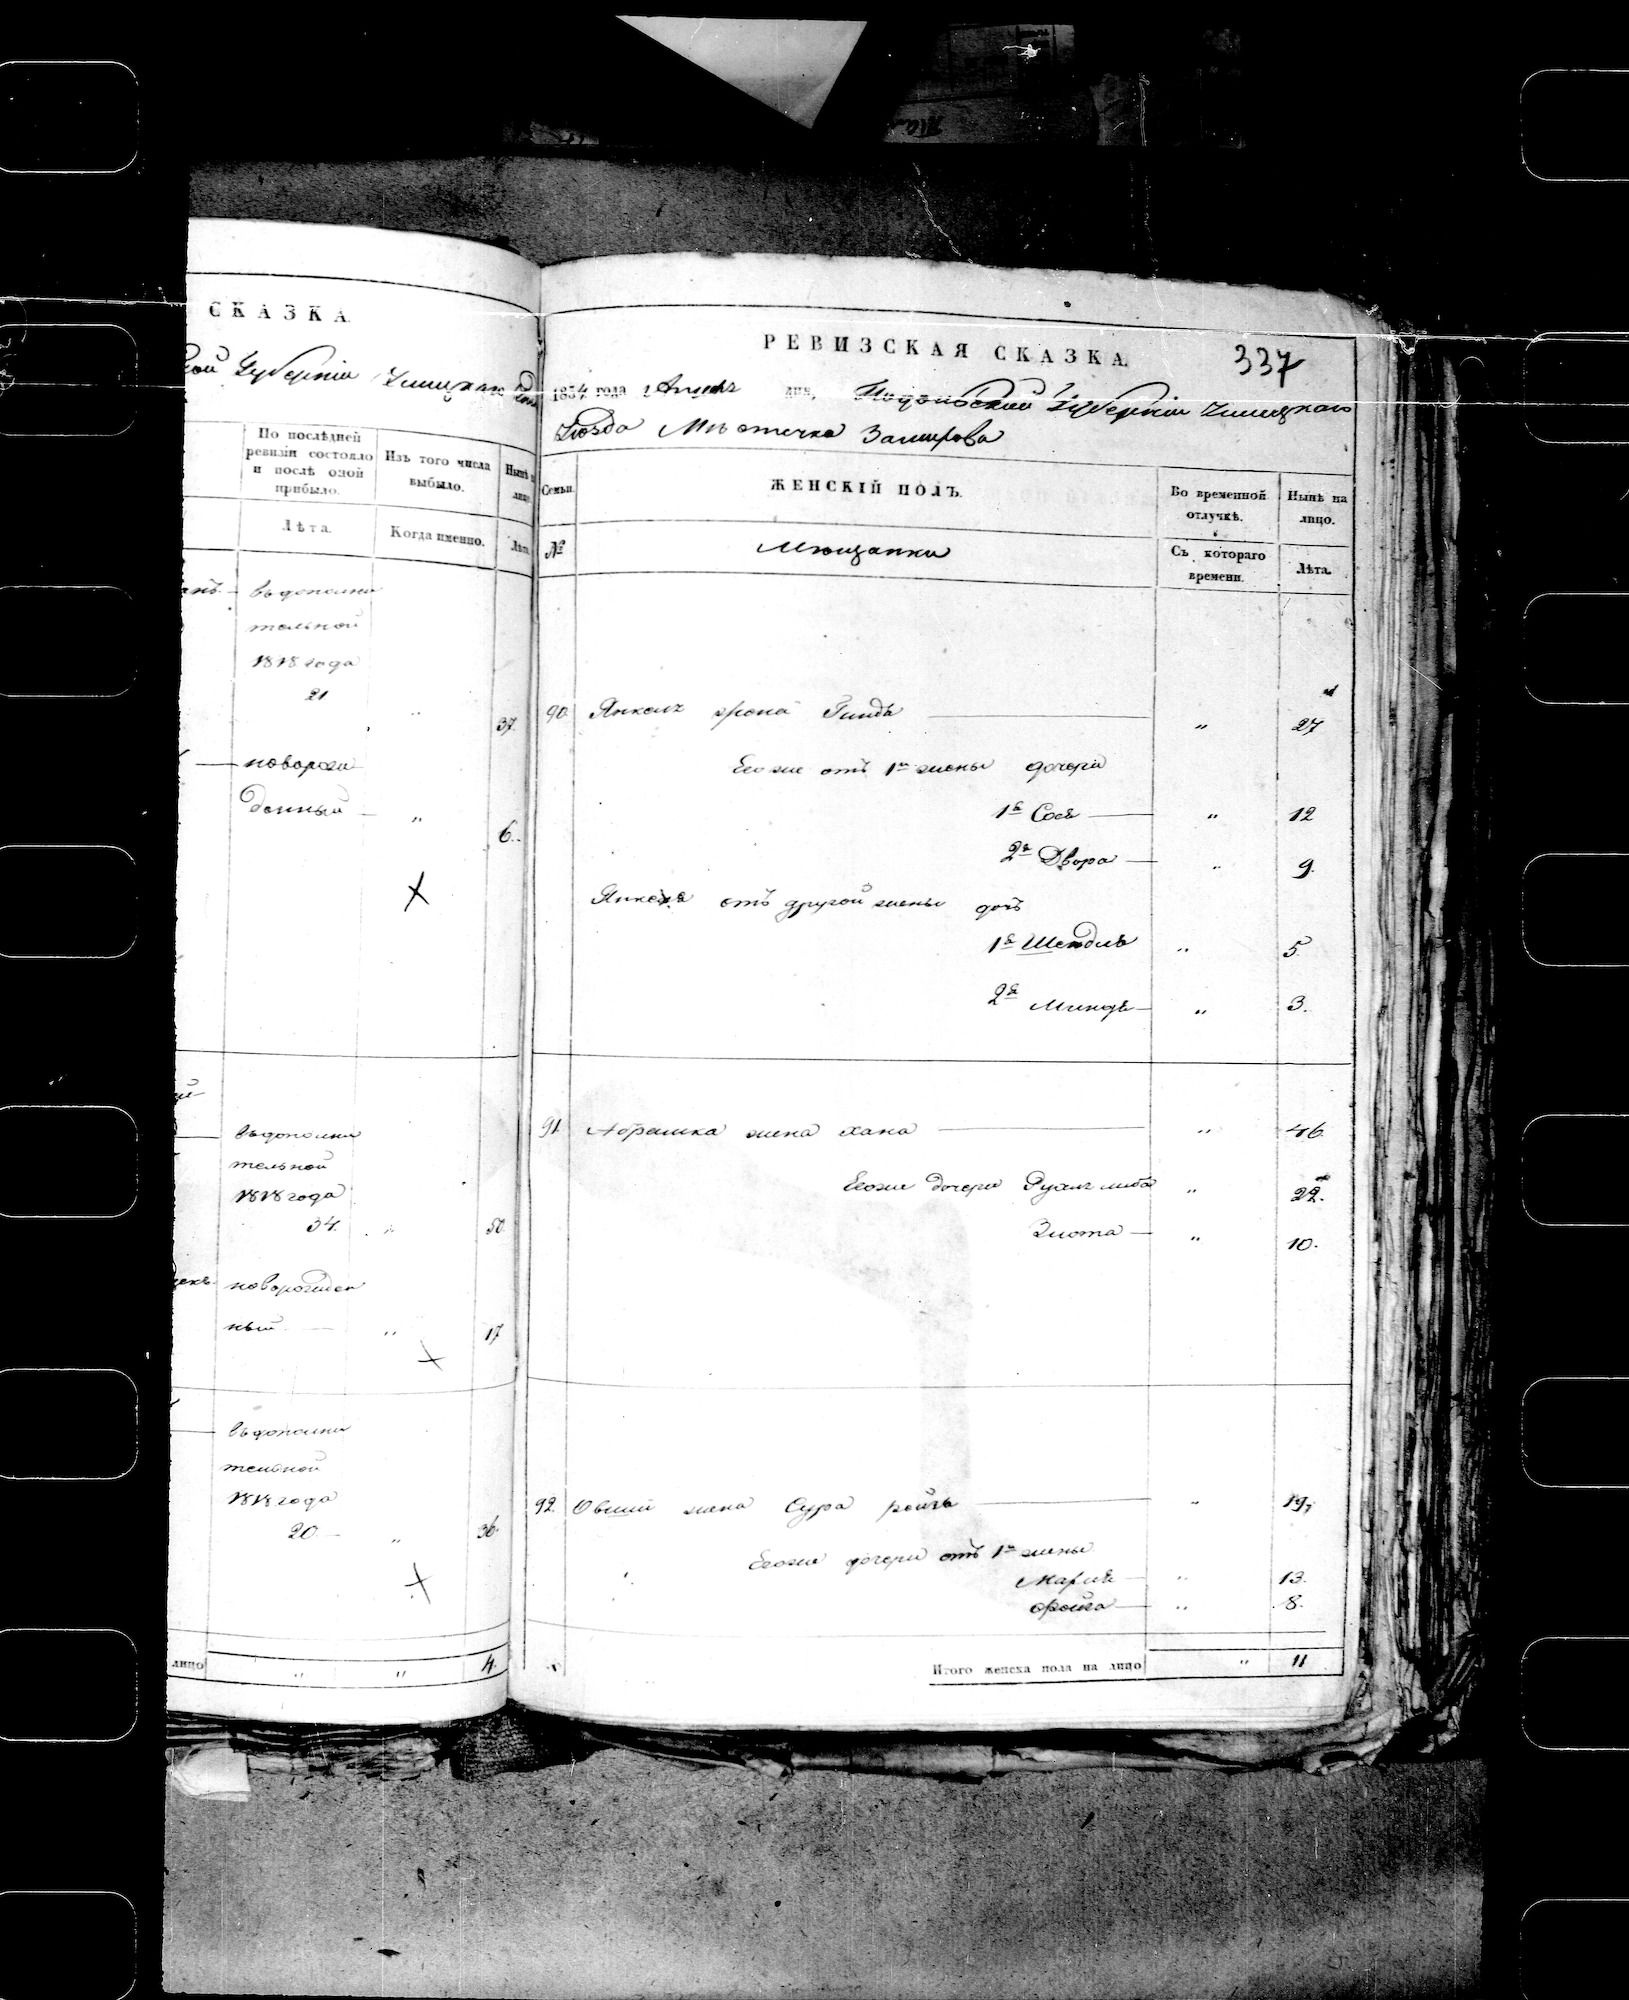 СКАЗКА.
кой Губерніи Ушицкаго
По послѣдней
ревизіи состояло
и послѣ оной
прибыло.
Изъ того числа
выбыло.
Нынѣ
лицо
Лѣта.
Когда именно.
Лѣта.
въ дополни
тельной
1818 года
21 " 37.
новорож
денный — " 6.
въ дополни
тельной
1818 года
34. " 50
новорожден
ный — " 17
въ дополни
тельной
1818 года
20 — " 36.
лицо " " 4.
РЕВИЗСКАЯ СКАЗКА
337
1834 года Апреля дня, Подольской Губерніи Ушицкаго
Уѣзда Мѣстечка Замихова
Семьи.
ЖЕНСКІЙ ПОЛЪ.
Во временной
отлучкѣ.
Нынѣ на
лицо.
№
Мѣщанки
Съ котораго
времени.
Лѣта.
90 Янкеля жена Гинда — " 27
Его же отъ 1й жены дочери
1я Сося — " 12
2я Двора — " 9.
Янкеля отъ другой жены дочь
1я Шендля " 5
2я Миндя — " 3.
91 Абрамка жена Хана — " 46.
Его же дочери Рухля Либа " 22.
Злота — " 10.
92. Овшия жена Сура Ройза — " 19
Его же дочери отъ 1й жены
Мария — " 13.
Фройга — " 8.
Итого женска пола на лицо " 11